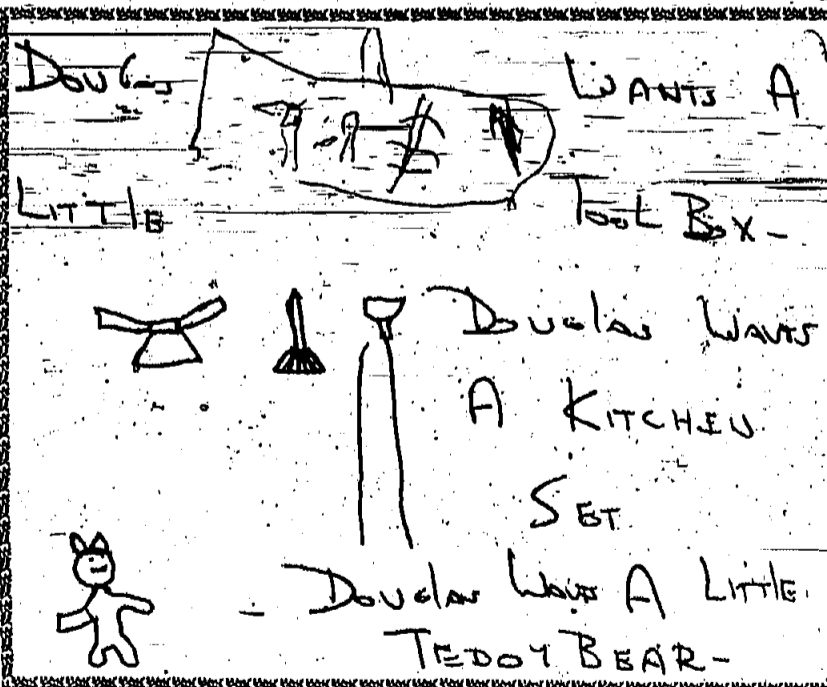 Douglas WANTS A
LITTLE Tool Box-
Douglas WANTS
A KITCHEN
SET
- Douglas WANTS A LITTLE
TEDDY BEAR-